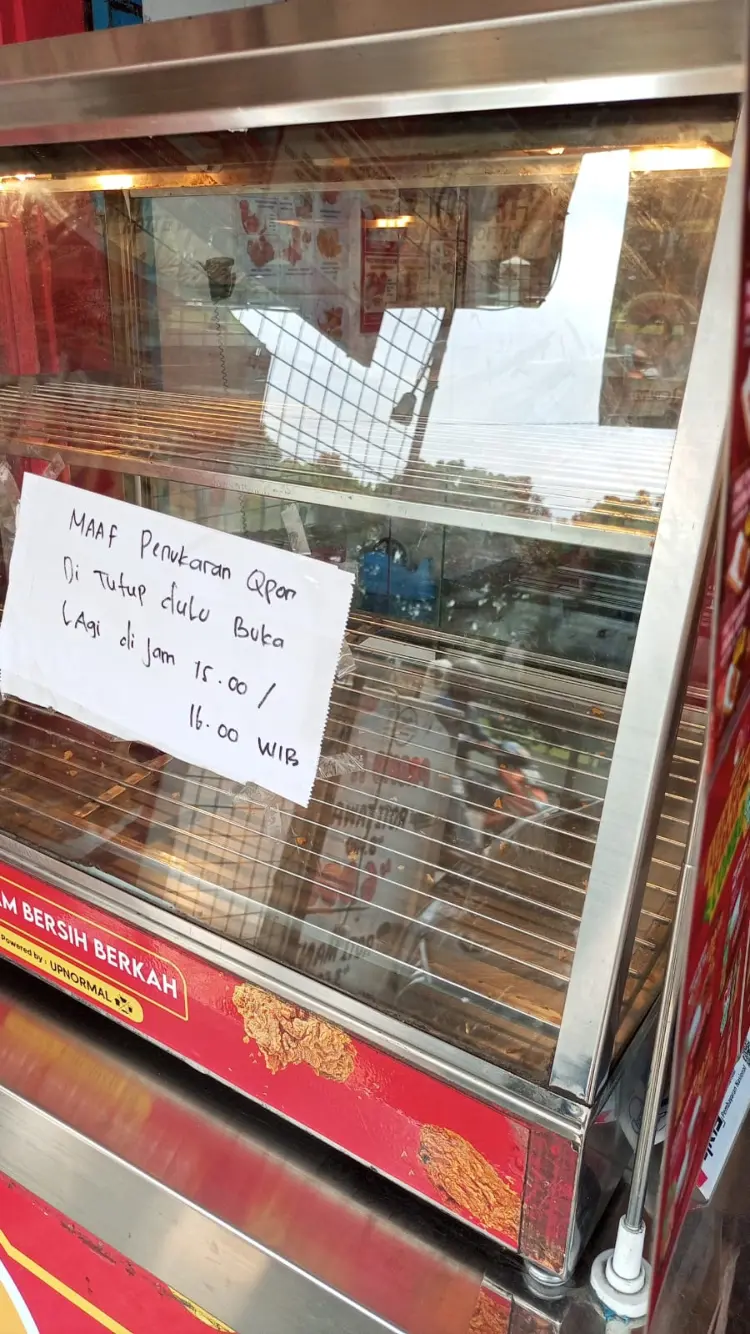 MAAF Penukaran Qpon
Di Tutup dulu Buka
LAgi di Jam 15.00 /
16.00 WIB
AM BERSIH BERKAH
Powered by : UPNORMAL